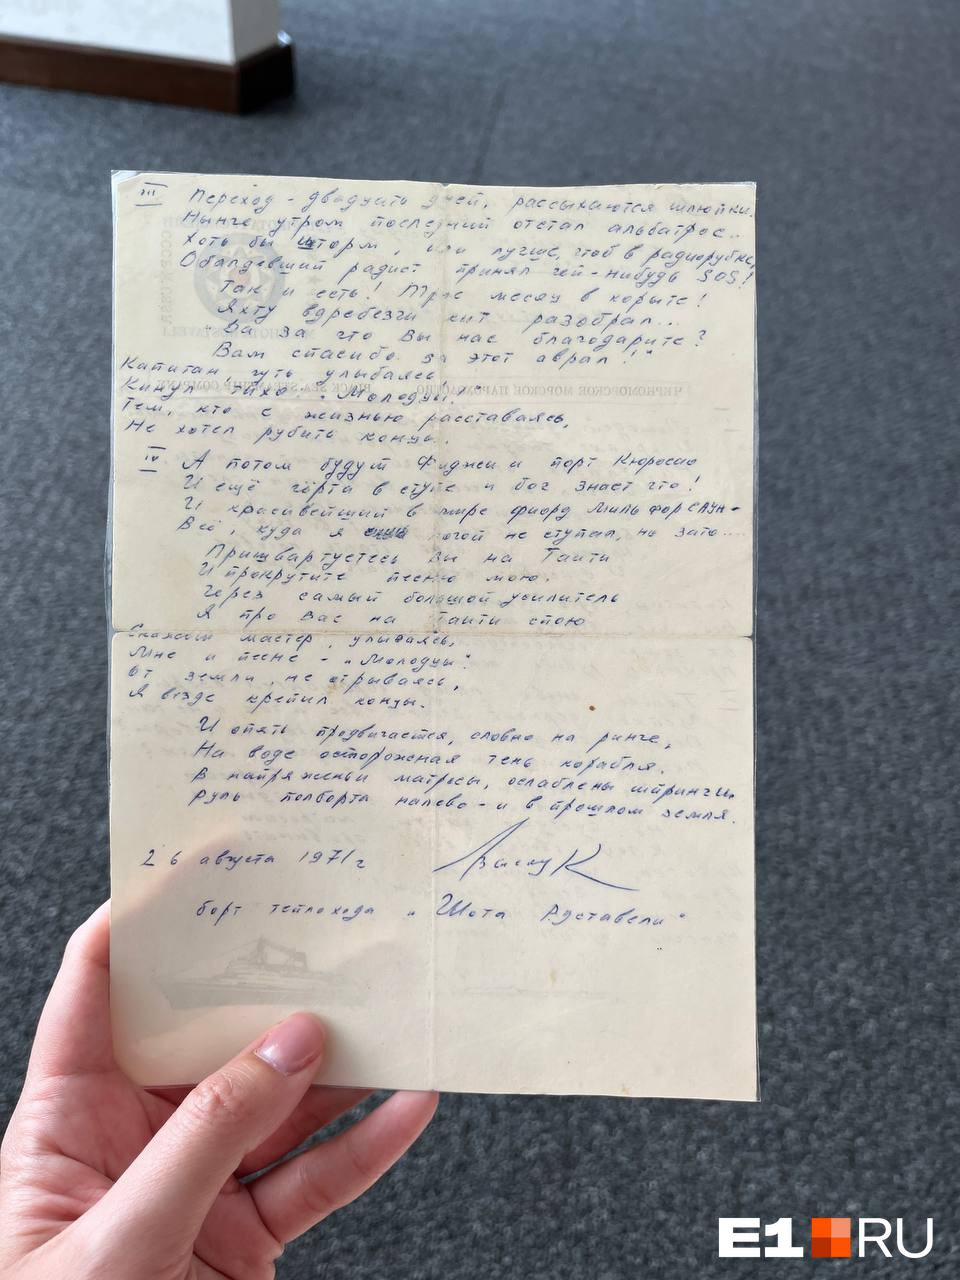 III Переход - двадцать дней, рассыхаются шлюпки,
Нынче утром последний отстал альбатрос...
Хоть бы шторм, или лучше, чтоб в радиорубке,
Обалдевший радист принял чей-нибудь SOS!
Так и есть! Трое месяц в корыте!
Яхту вдребезги кит разобрал...
"Да за что Вы нас благодарите?
Вам спасибо за этот аврал!"
Капитан, чуть улыбаясь,
Кинул тихо: "Молодцы!"
Тем, кто с жизнью расставаясь,
Не хотел рубить концы.
IV А потом будут Фиджи и порт Кюросао
И ещё чёрта в ступе и бог знает что!
И красивейший в мире фиорд Мильфорсаун -
Всё, куда я ногой не ступал, но зато....
Пришвартуетесь Вы на Таити
И прокрутите песню мою.
Через самый большой усилитель
Я про Вас на Таити спою
Скажет мастер, улыбаясь,
Мне и песне - "Молодцы".
От земли, не отрываясь,
Я везде крепил концы.
И опять продвигается, словно на ринге,
На воде осторожная тень корабля.
В напряженьи матросы, ослаблены шпринги
Руль полборта налево - и в прошлом земля.
26 августа 1971 г
борт теплохода "Шота Руставели"
ЧЕРНОМОРСКОЕ МОРСКОЕ ПАРОХОДСТВО BLACK SEA STEAMSHIP COMPANY
E1 RU